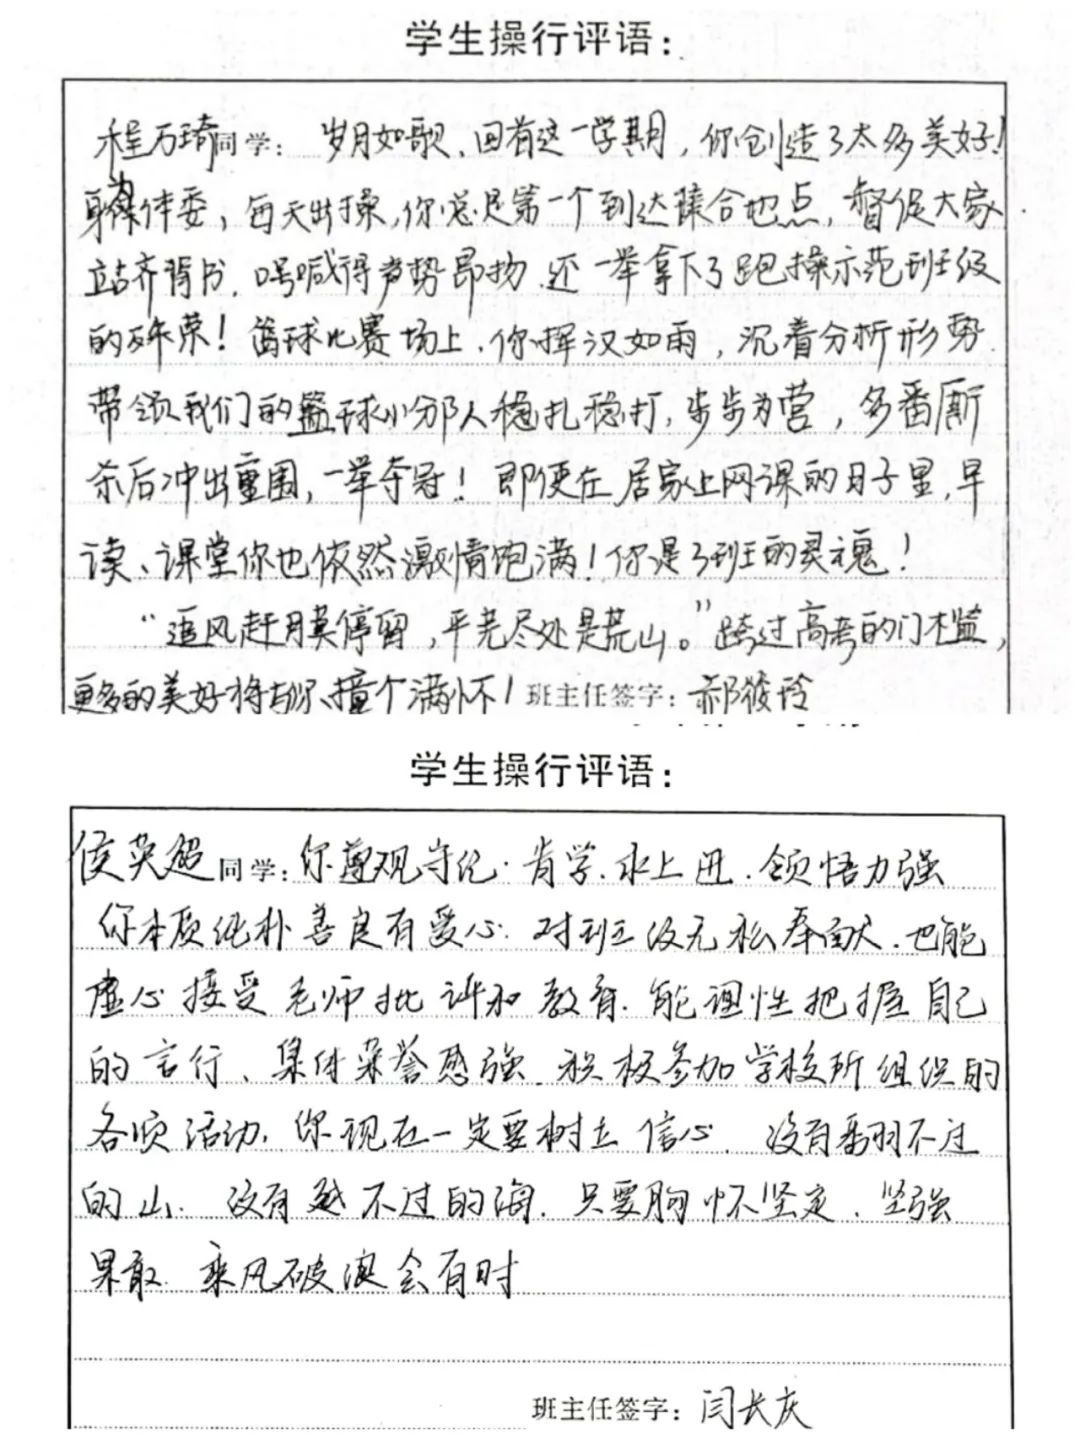 学生操行评语：
程万琦同学： 岁月如歌，回首这一学期，你创造了太多美好！
身为体委，每天出操，你总是第一个到达集合地点，督促大家
站齐背书，口号喊得声势昂扬，还一举拿下了跑操示范班级
的殊荣！篮球比赛场上，你挥汉如雨，沉着分析形势
带领我们的篮球小分队人稳扎稳打，步步为营，多番厮
杀后冲出重围，一举夺冠！即便在居家上网课的日子里，早
读、课堂你也依然激情饱满！你是3班的灵魂！
“追风赶月莫停留，平芜尽处是荒山。”跨过高考的门槛，
更多的美好将与你撞个满怀！班主任签字：郝筱玲
学生操行评语：
侯英超同学：你尊规守纪．肯学．求上进．领悟力强
你本质纯朴善良有爱心．对班级无私奉献．也能
虚心接受老师批评和教育．能理性把握自己
的言行、集体荣誉感强．积极参加学校所组织的
各项活动．你现在一定要树立信心．没有翻不过
的山．没有越不过的海．只要胸怀坚定．坚强
果敢．乘风破浪会有时
班主任签字：闫长庆